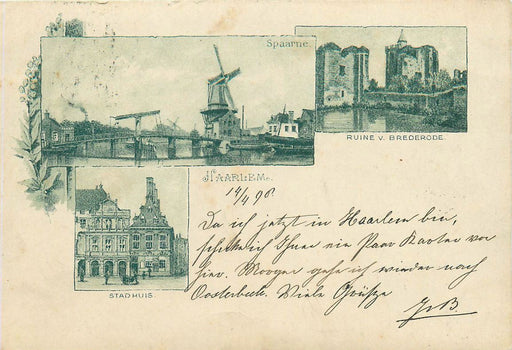 Spaarne.
RUINE V. BREDERODE.
HAARLEM.
14/4 98.
STADHUIS.
Da ich jetzt in Haarlem bin,
schicke ich Ihnen ein Paar Karten von
hier. Morgen gehe ich wieder nach
Oosterbeek. Viele Grüße
JvB.